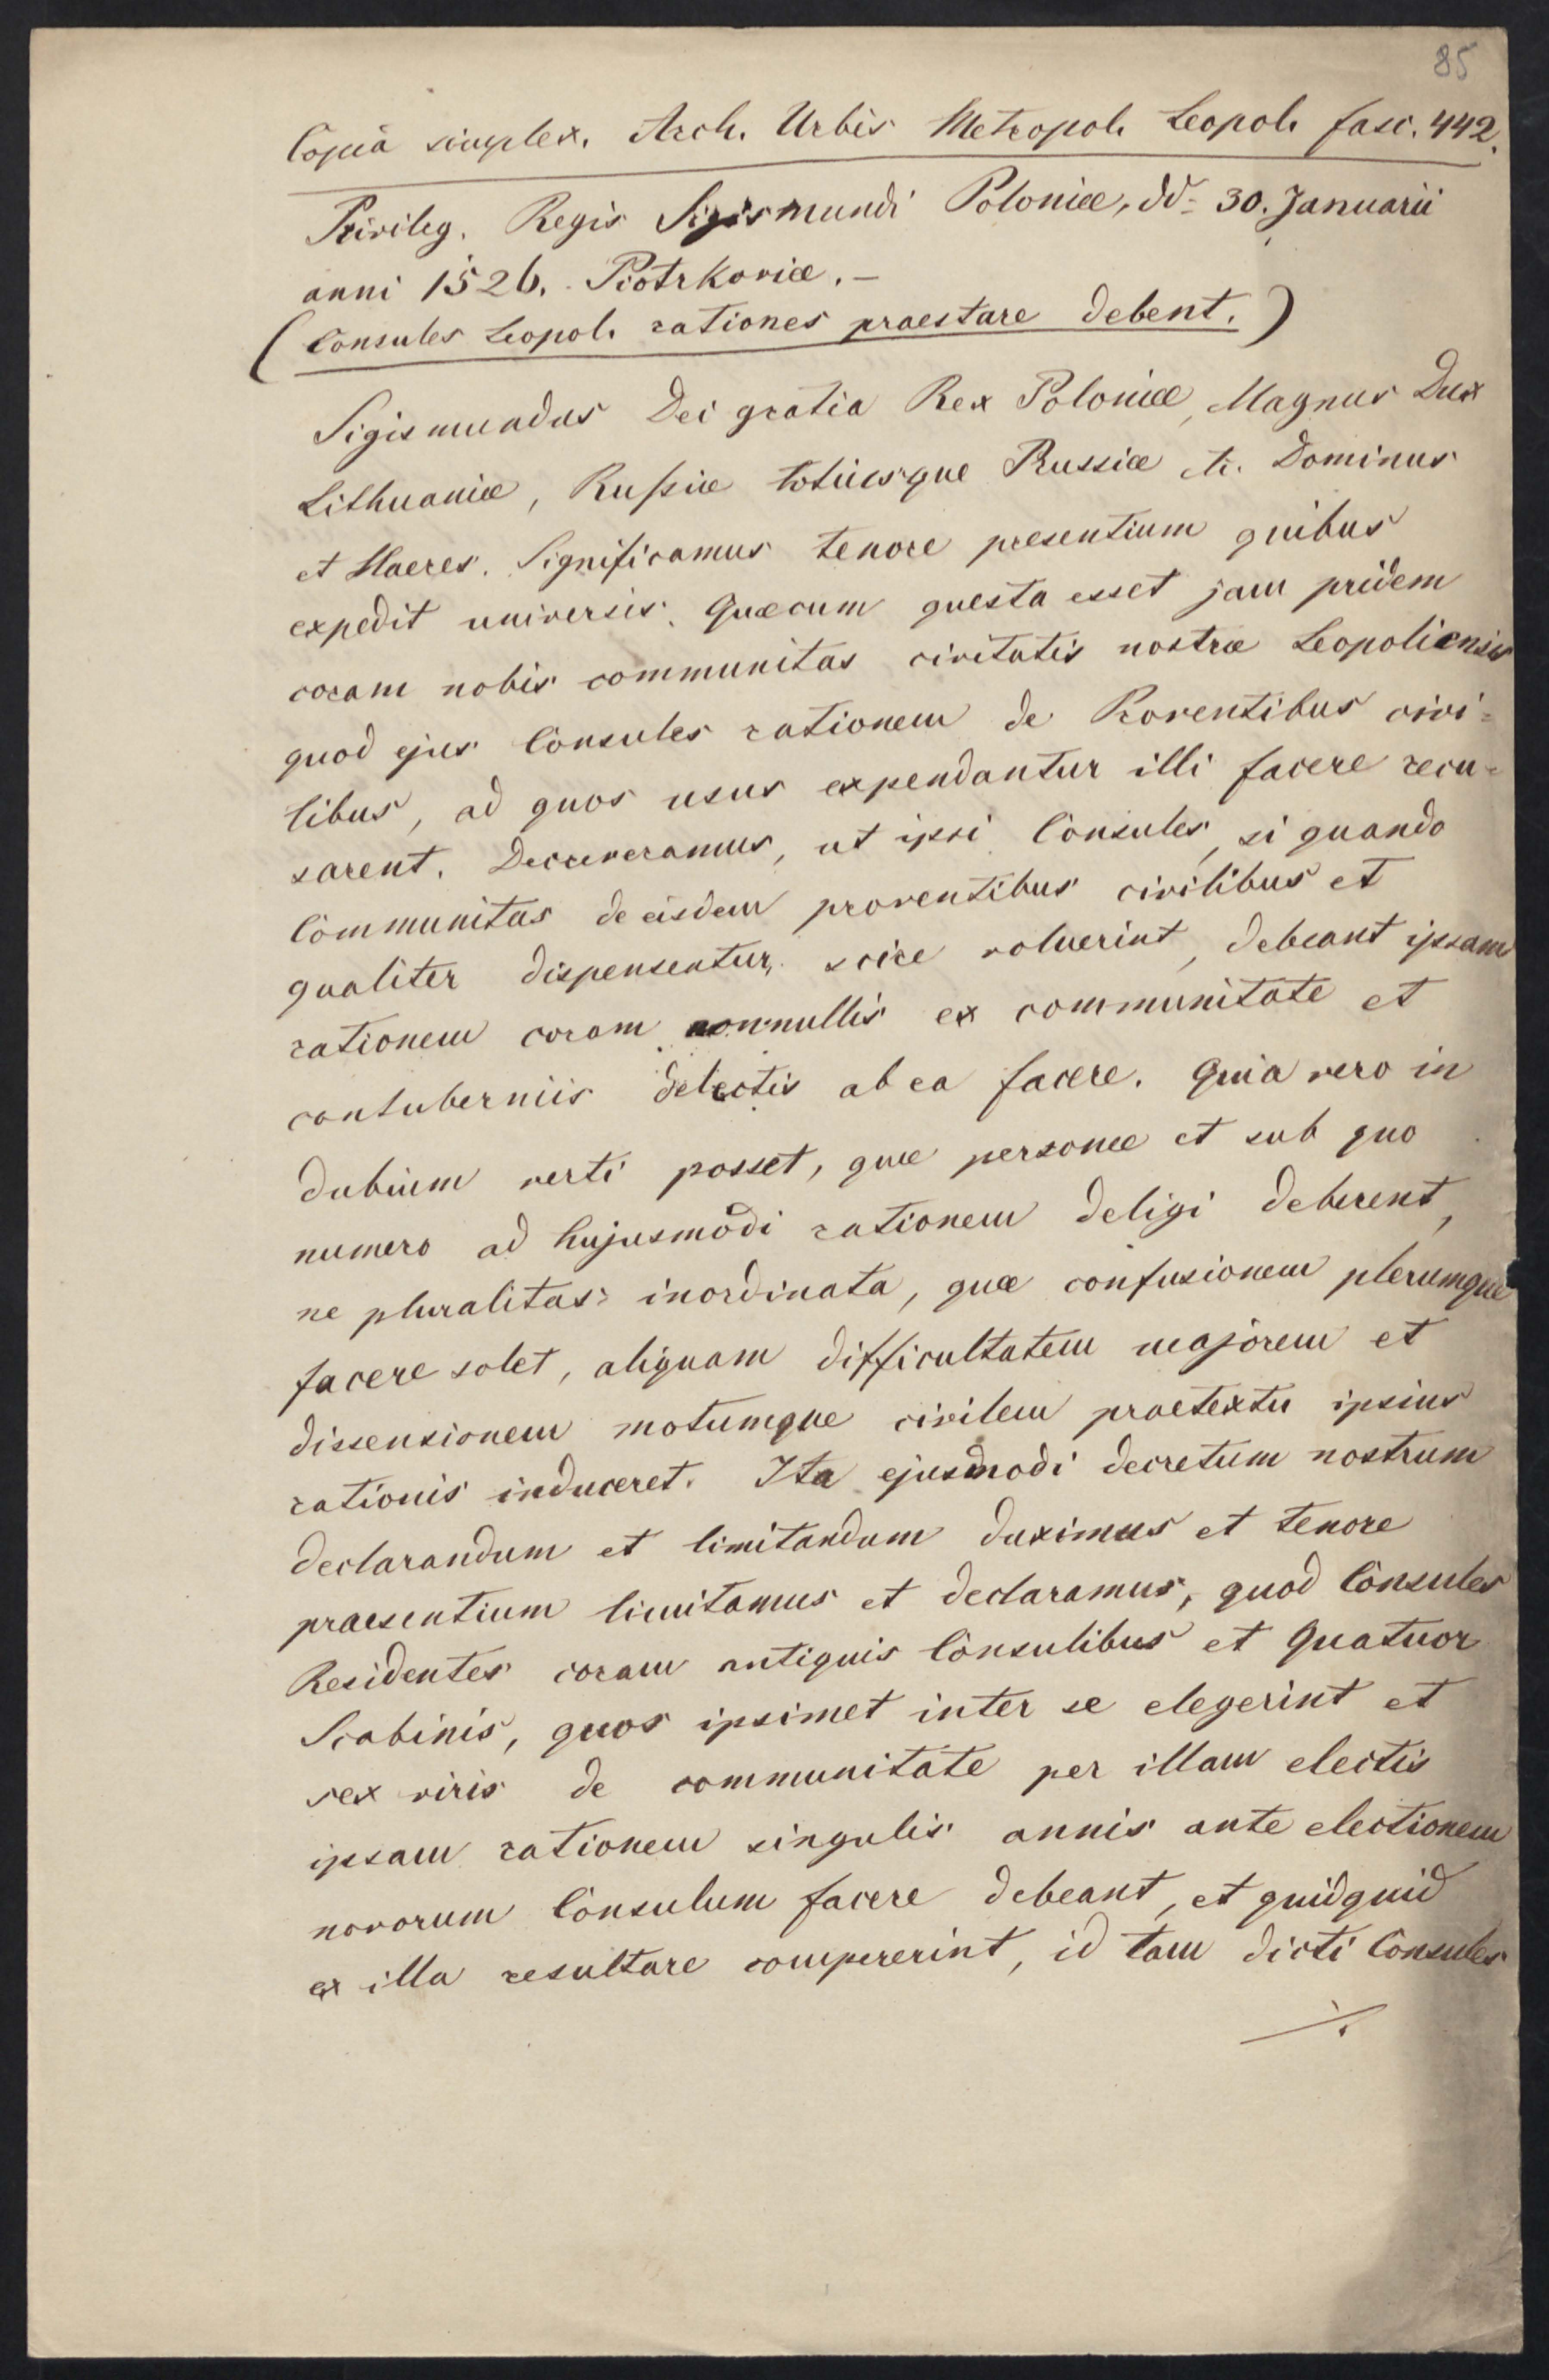 85
Copia simplex. Arch. Urbis Metropol. Leopol. fasc. 442.
Privileg. Regis Sigismundi Poloniæ, dd= 30. Januarii
anni 1526. Piotrkoviæ. –
(Consules Leopol. rationes praestare debent.)
Sigismundus Dei gratia Rex Poloniæ, Magnus Dux
Lithuaniæ, Rußiæ totiusque Prussiæ etc. Dominus
et Haeres. Significamus tenore presentium quibus
expedit universis. Quæcum questa esset jam pridem
coram nobis communitas civitatis nostræ Leopoliensis
quod ejus Consules rationem de Proventibus civi=
libus, ad quos usus expendantur illi facere recu=
sarent. Decreveramus, ut ipsi Consules, si quando
Communitas de eisdem proventibus civilibus et
qualiter dispensentur, scire voluerint, debeant ipsam
rationem coram nonnullis ex communitate et
contuberniis delectis ab ea facere. Quia vero in
dubium verti posset, quæ personæ et sub quo
numero ad hujusmodi rationem deligi deberent,
ne pluralitas inordinata, quæ confusionem plerumque
facere solet, aliquam difficultatem majorem et
dissensionem motumque civilem praetextu ipsius
rationis induceret. Ita ejusmodi decretum nostrum
declarandum et limitandum duximus et tenore
praesentium limitamus et declaramus, quod Consules
Residentes coram antiquis Consulibus et Quatuor
Scabinis, quos ipsimet inter se elegerint et
sex viris de communitate per illam electis
ipsam rationem singulis annis ante electionem
novorum Consulum facere debeant, et quidquid
ex illa resultare compererint, id tam dicti Consules
./.